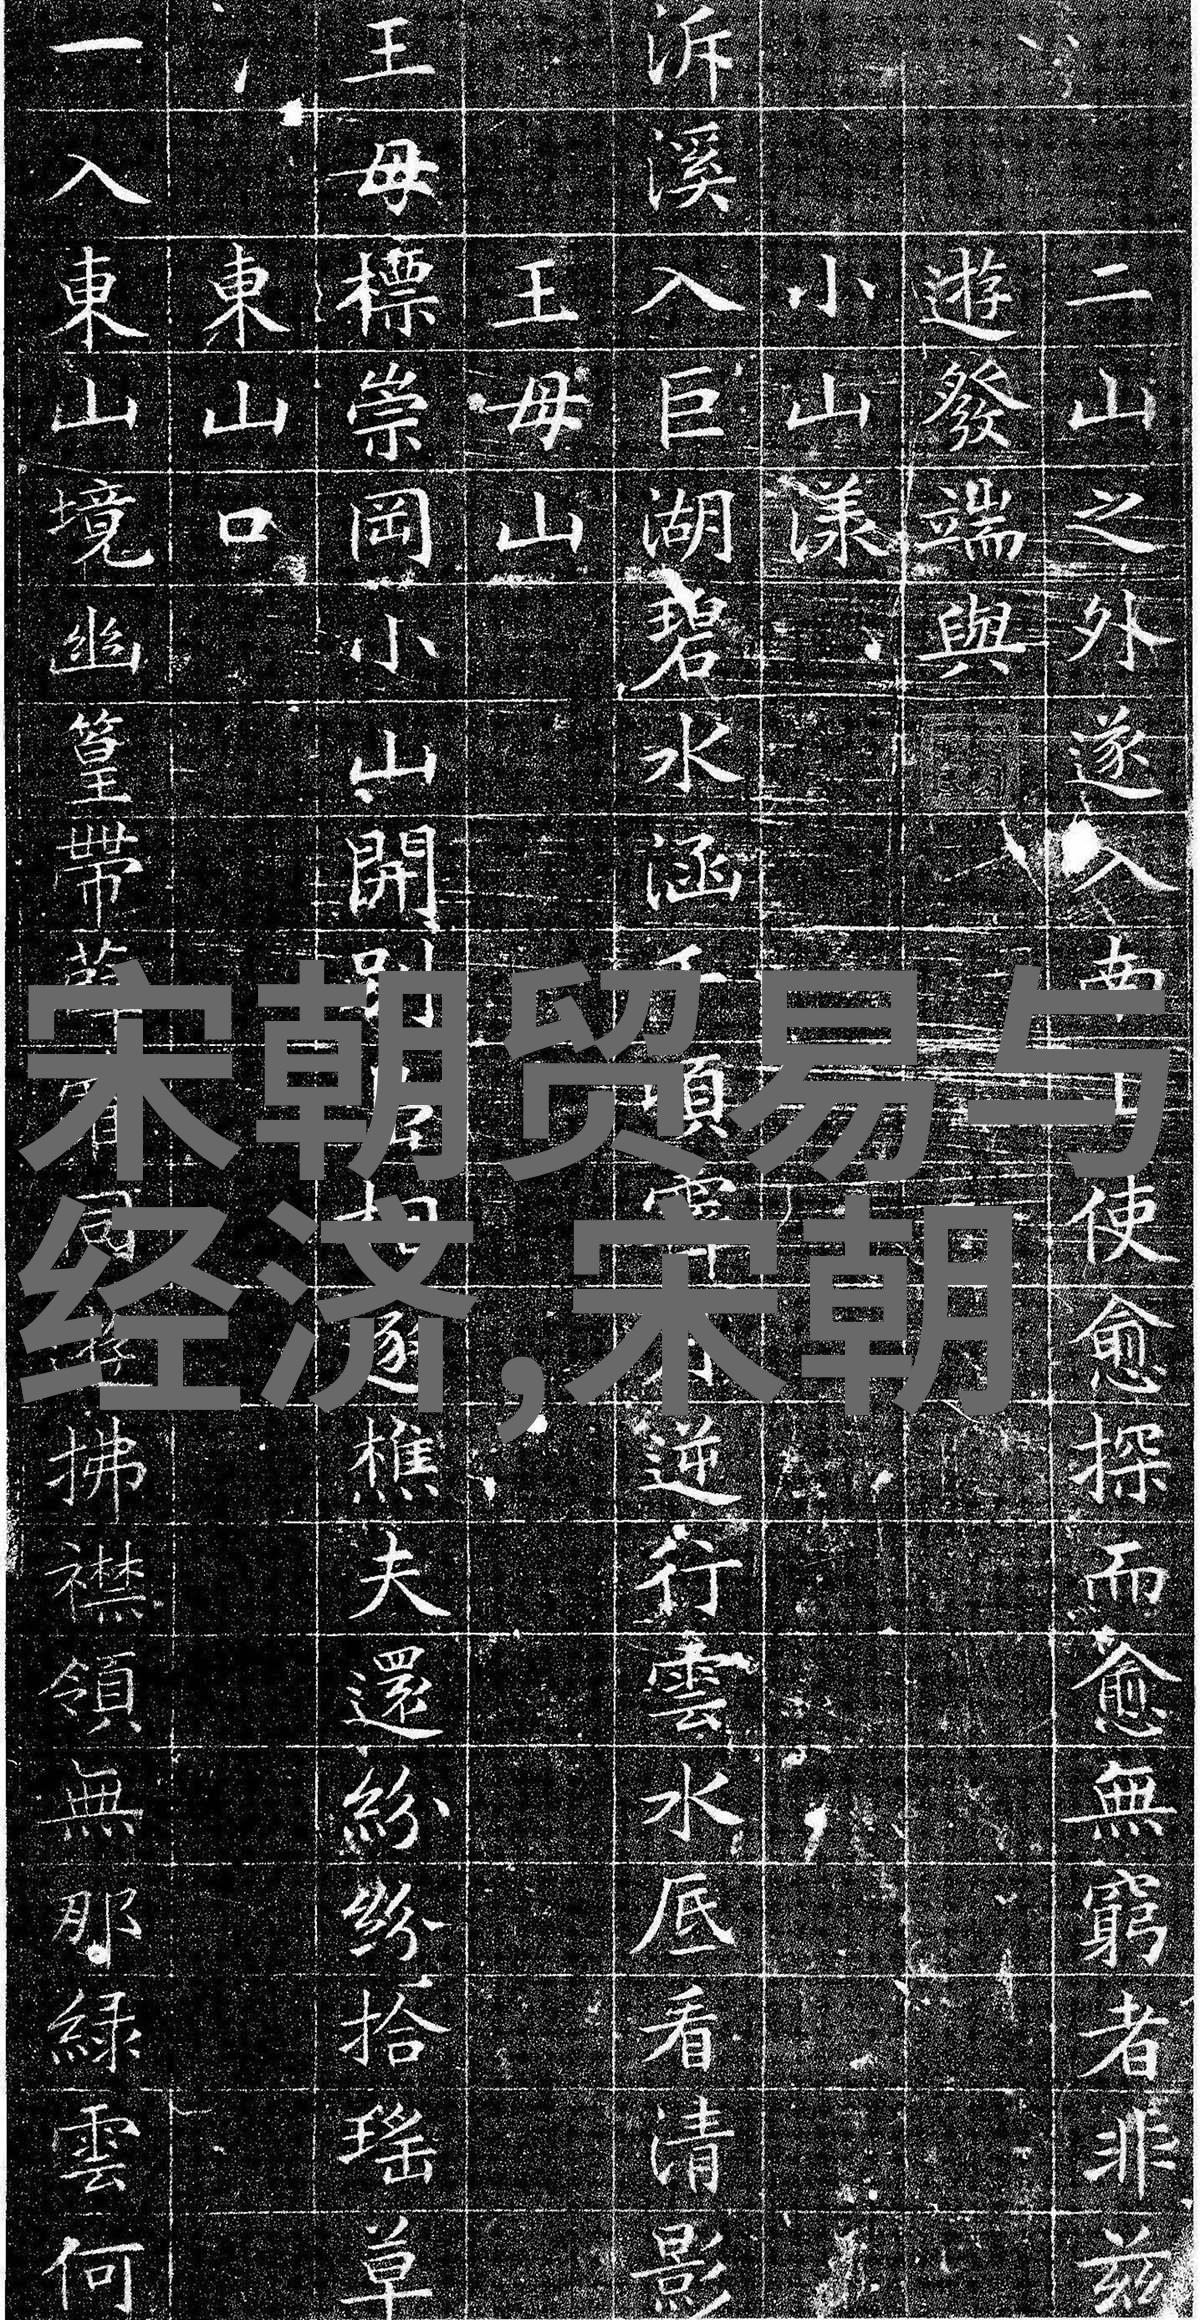 二山之外遂入南使愈探而愈無窮者非兹
遊發端與
小山漾
泝溪入巨湖碧水涵千頃逆行雲水底看清影
王母山
王母標崇岡小山開別樵夫還紛紛拾瑤草
東山口
一入東山境幽篁帶同遊拂襟領無那綠雲何
宋朝贸易与
经济,宋朝